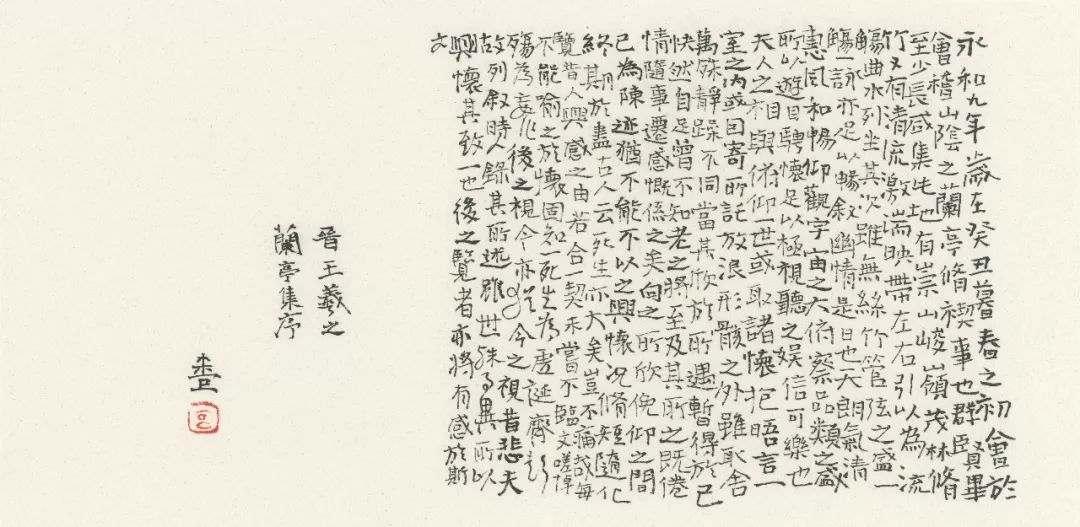 永和九年歲在癸丑暮春之初會於
會稽山陰之蘭亭脩禊事也群賢畢
至少長咸集此地有崇山峻嶺茂林脩
竹又有清流激湍映帶左右引以為流
觴曲水列坐其次雖無絲竹管弦之盛一
觴一詠亦足以暢敘幽情是日也天朗氣清
惠風和暢仰觀宇宙之大俯察品類之盛
所以遊目騁懷足以極視聽之娛信可樂也
夫人之相與俯仰一世或取諸懷抱晤言一
室之內或因寄所託放浪形骸之外雖取舍
萬殊靜躁不同當其欣於所遇暫得於己
快然自足曾不知老之將至及其所之既倦
情隨事遷感慨係之矣向之所欣俛仰之間
已為陳迹猶不能不以之興懷況脩短隨化
終期於盡古人云死生亦大矣豈不痛哉每
覽昔人興感之由若合一契未嘗不臨文嗟悼
不能喻之於懷固知一死生為虛誕齊彭
殤為妄作後之視今亦今之視昔悲夫
故列敘時人錄其所述雖世殊事異所以
興懷其致一也後之覽者亦將有感於斯
文
晉王羲之
蘭亭集序